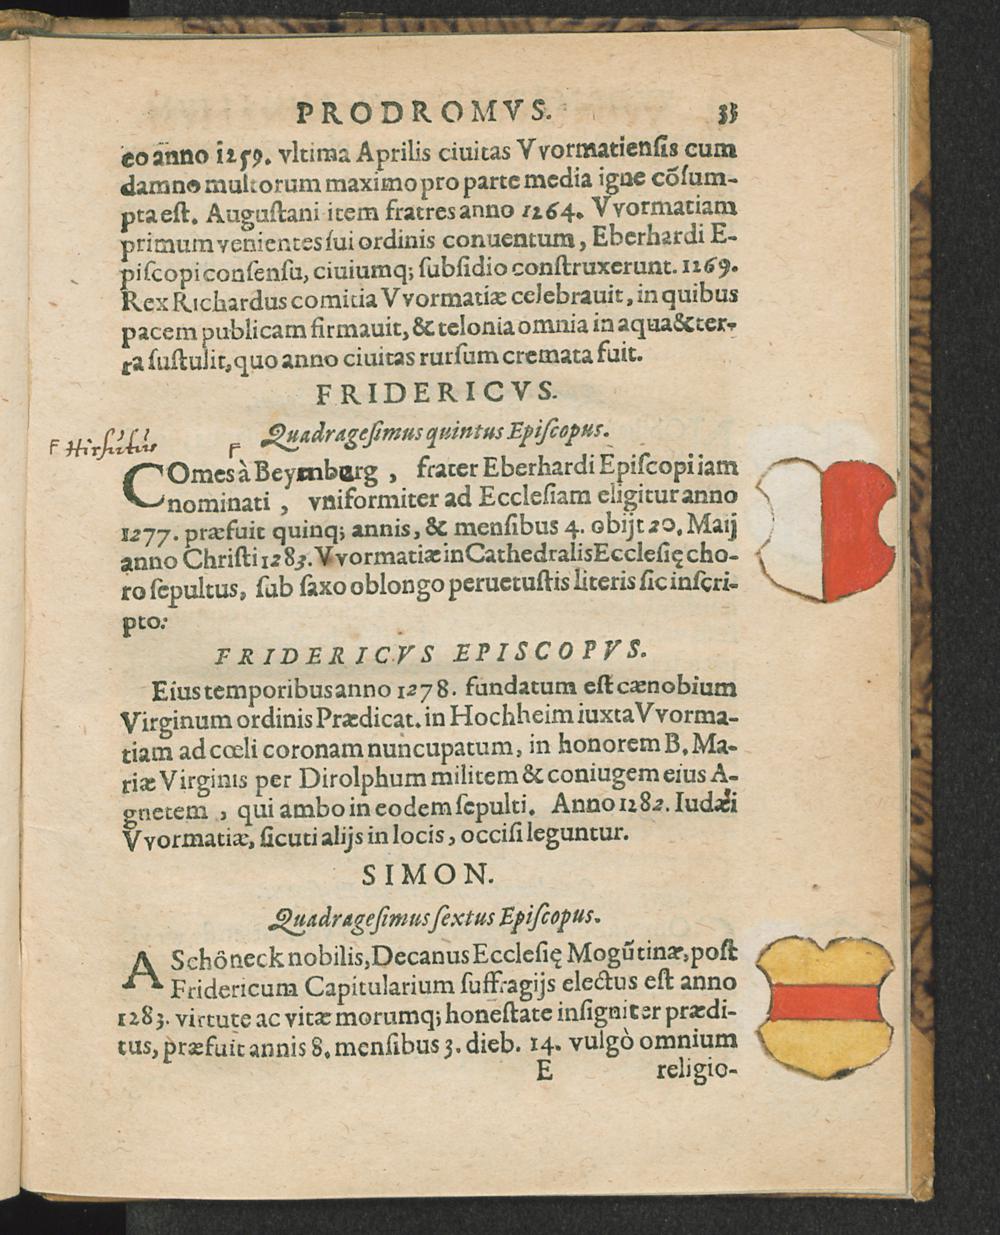 PRODROMVS. 33
eo anno 1259. vltima Aprilis ciuitas VVormatiensis cum
damno multorum maximo pro parte media igne cōsum-
pta est. Augustani item fratres anno 1264. VVormatiam
primum venientes sui ordinis conuentum, Eberhardi E-
piscopi consensu, ciuiumq; subsidio construxerunt. 1269.
Rex Richardus comitia VVormatiæ celebrauit, in quibus
pacem publicam firmauit, & telonia omnia in aqua & ter-
ra sustulit, quo anno ciuitas rursum cremata fuit.
FRIDERICVS.
Quadragesimus quintus Episcopus.
F Hirsutus
F
COmes à Beymburg, frater Eberhardi Episcopi iam
nominati, vniformiter ad Ecclesiam eligitur anno
1277. præfuit quinq; annis, & mensibus 4. obijt 20. Maij
anno Christi 1283. VVormatiæ in Cathedralis Ecclesię cho-
ro sepultus, sub saxo oblongo peruetustis literis sic inscri-
pto:
FRIDERICVS EPISCOPVS.
Eius temporibus anno 1278. fundatum est cænobium
Virginum ordinis Prædicat. in Hochheim iuxta VVorma-
tiam ad cœli coronam nuncupatum, in honorem B. Ma-
riæ Virginis per Dirolphum militem & coniugem eius A-
gnetem, qui ambo in eodem sepulti. Anno 1282. Iudæi
VVormatiæ, sicuti alijs in locis, occisi leguntur.
SIMON.
Quadragesimus sextus Episcopus.
A Schöneck nobilis, Decanus Ecclesię Mogūtinæ, post
Fridericum Capitularium suffragijs electus est anno
1283. virtute ac vitæ morumq; honestate insigniter prædi-
tus, præfuit annis 8. mensibus 3. dieb. 14. vulgò omnium
E religio-